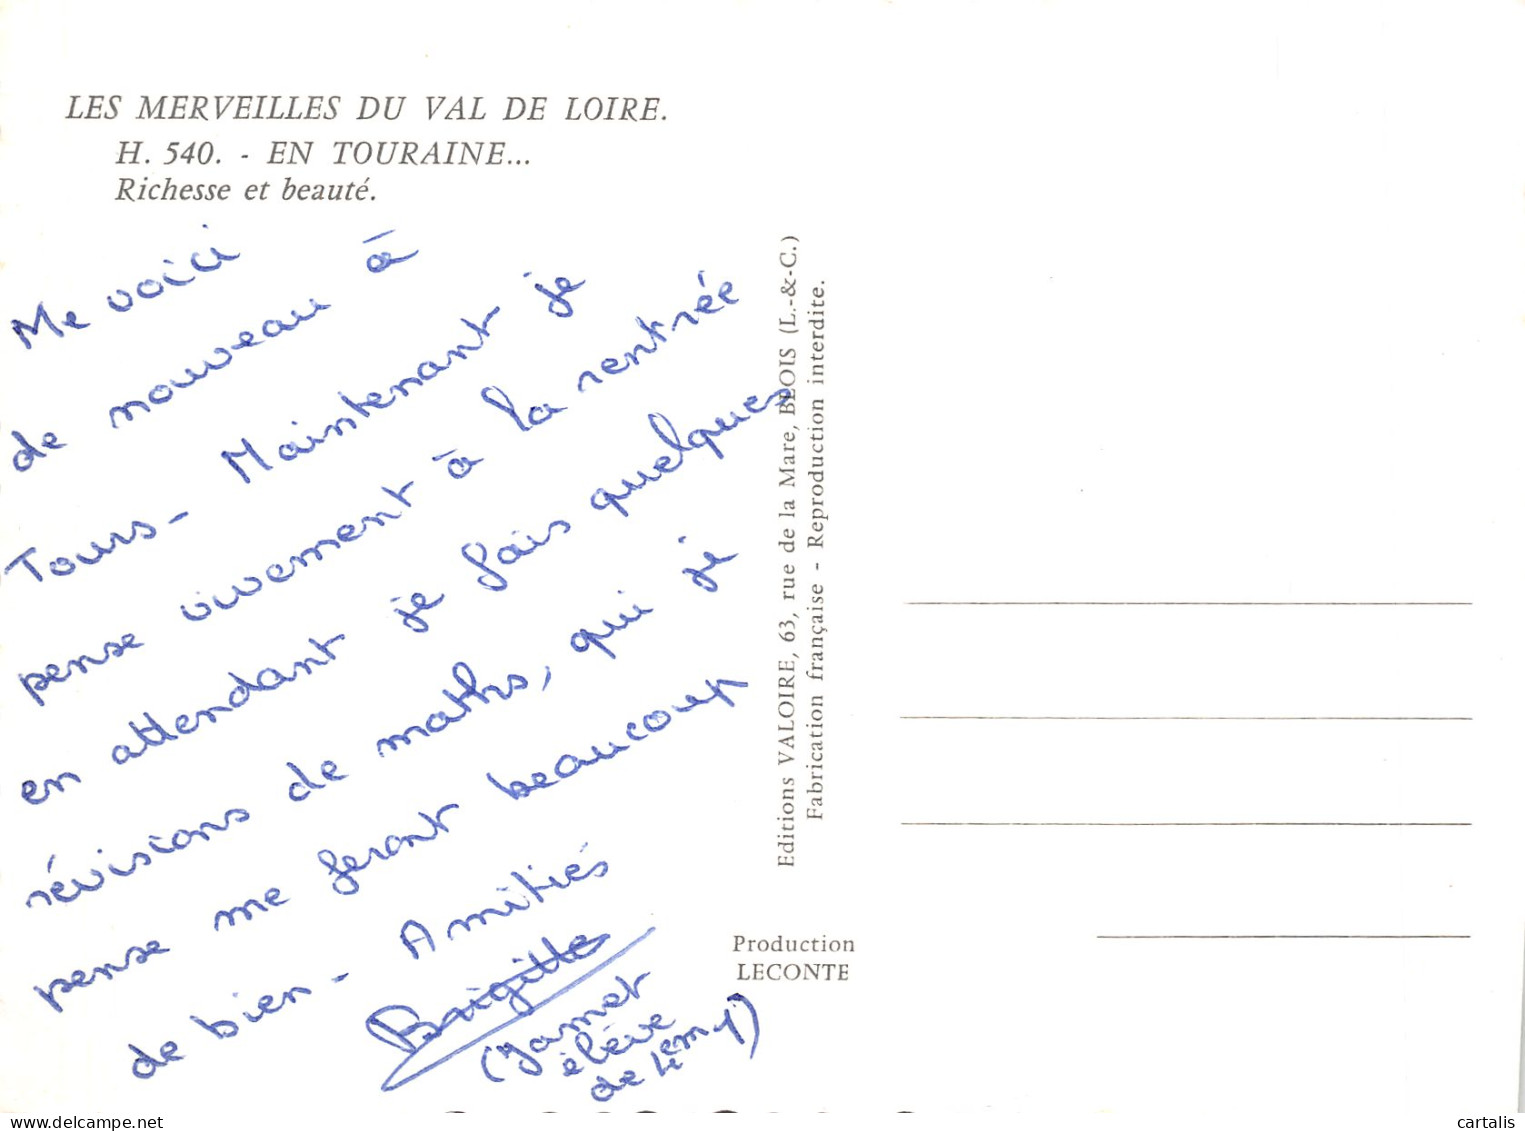 LES MERVEILLES DU VAL DE LOIRE.
H. 540. - EN TOURAINE...
Richesse et beauté.
Me voici
de nouveau à
Tours - Maintenant je
pense vivement à la rentrée
en attendant je fais quelques
révisions de maths, qui je
pense me feront beaucoup
de bien - Amitiés
Brigitte
(Jamet
élève
de 4em1)
Editions VALOIRE, 63, rue de la Mare, BLOIS (L.-&-C.)
Fabrication française - Reproduction interdite.
Production
LECONTE
delcampe.net
cartalis